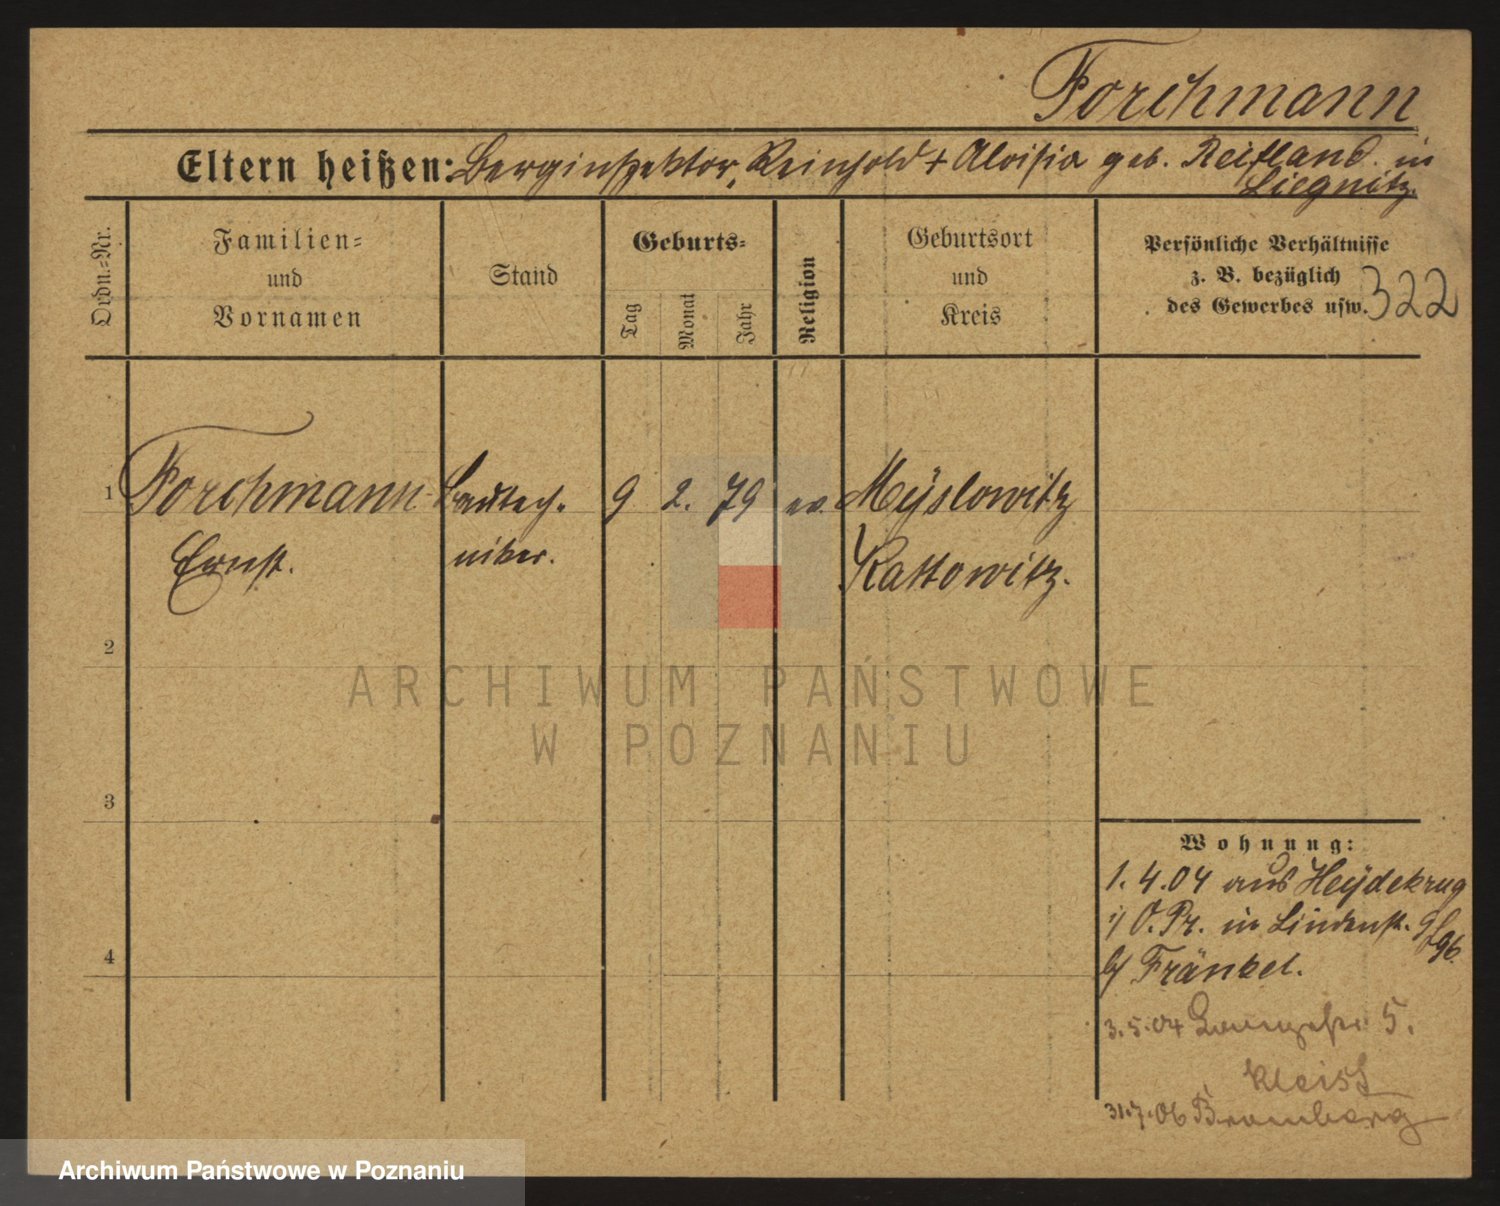 Forchmann
Eltern heißen: Berginspektor, Reinhold + Aloisia geb. Reifland. in
Liegnitz.
Ordn.-Nr.
Familien-
und
Vornamen
Stand
Geburts-
Tag
Monat
Jahr
Religion
Geburtsort
und
Kreis
Persönliche Verhältnisse
z. B. bezüglich
des Gewerbes usw.
322
1 Forchmann Bautech- 9 2. 79 ev. Meÿslowitz
Ernst. niker. Kattowitz.
2
3
4
Wohnung:
1. 4. 04 aus Heÿdekrug
i/ O. Pr. in Lindenstr. 9
b/ Fränkel.
3. 5. 04 Langestr. 5.
Kleist
31. 7. 06 Bromberg
ARCHIWUM PAŃSTWOWE
W POZNANIU
Archiwum Państwowe w Poznaniu